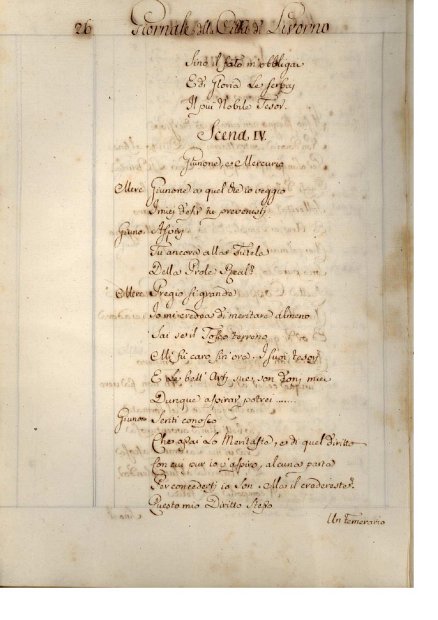 26 Giornale della Città di Livorno
Sino il fato m'obbliga
E di Gloria Le serbaj
Il più Nobile Tesor.
Scena IV.
Giunone, e Mercurio
Merc. Giunone a quel che io veggio
I miej tu prevenisti
Giuno.
Tu ancora alla Tutela
Della Prole Real?
Merc. Pregio sì grande
Io mi credea di meritare almeno
Sai se il Tosco terreno
Mi fù caro sin' ora. I suoi tesori
E Le bell' Arti sue, son doni miei
Dunque aspirar potrei ......
Giuno. Senti conosco
Che assai Lo Meritasti, e di quel dritto
Con cui pur io aspiro, alcuna parte
Per concederti io son. Ma il crederesti?
Questo mio Diritto stesso
Un temerario